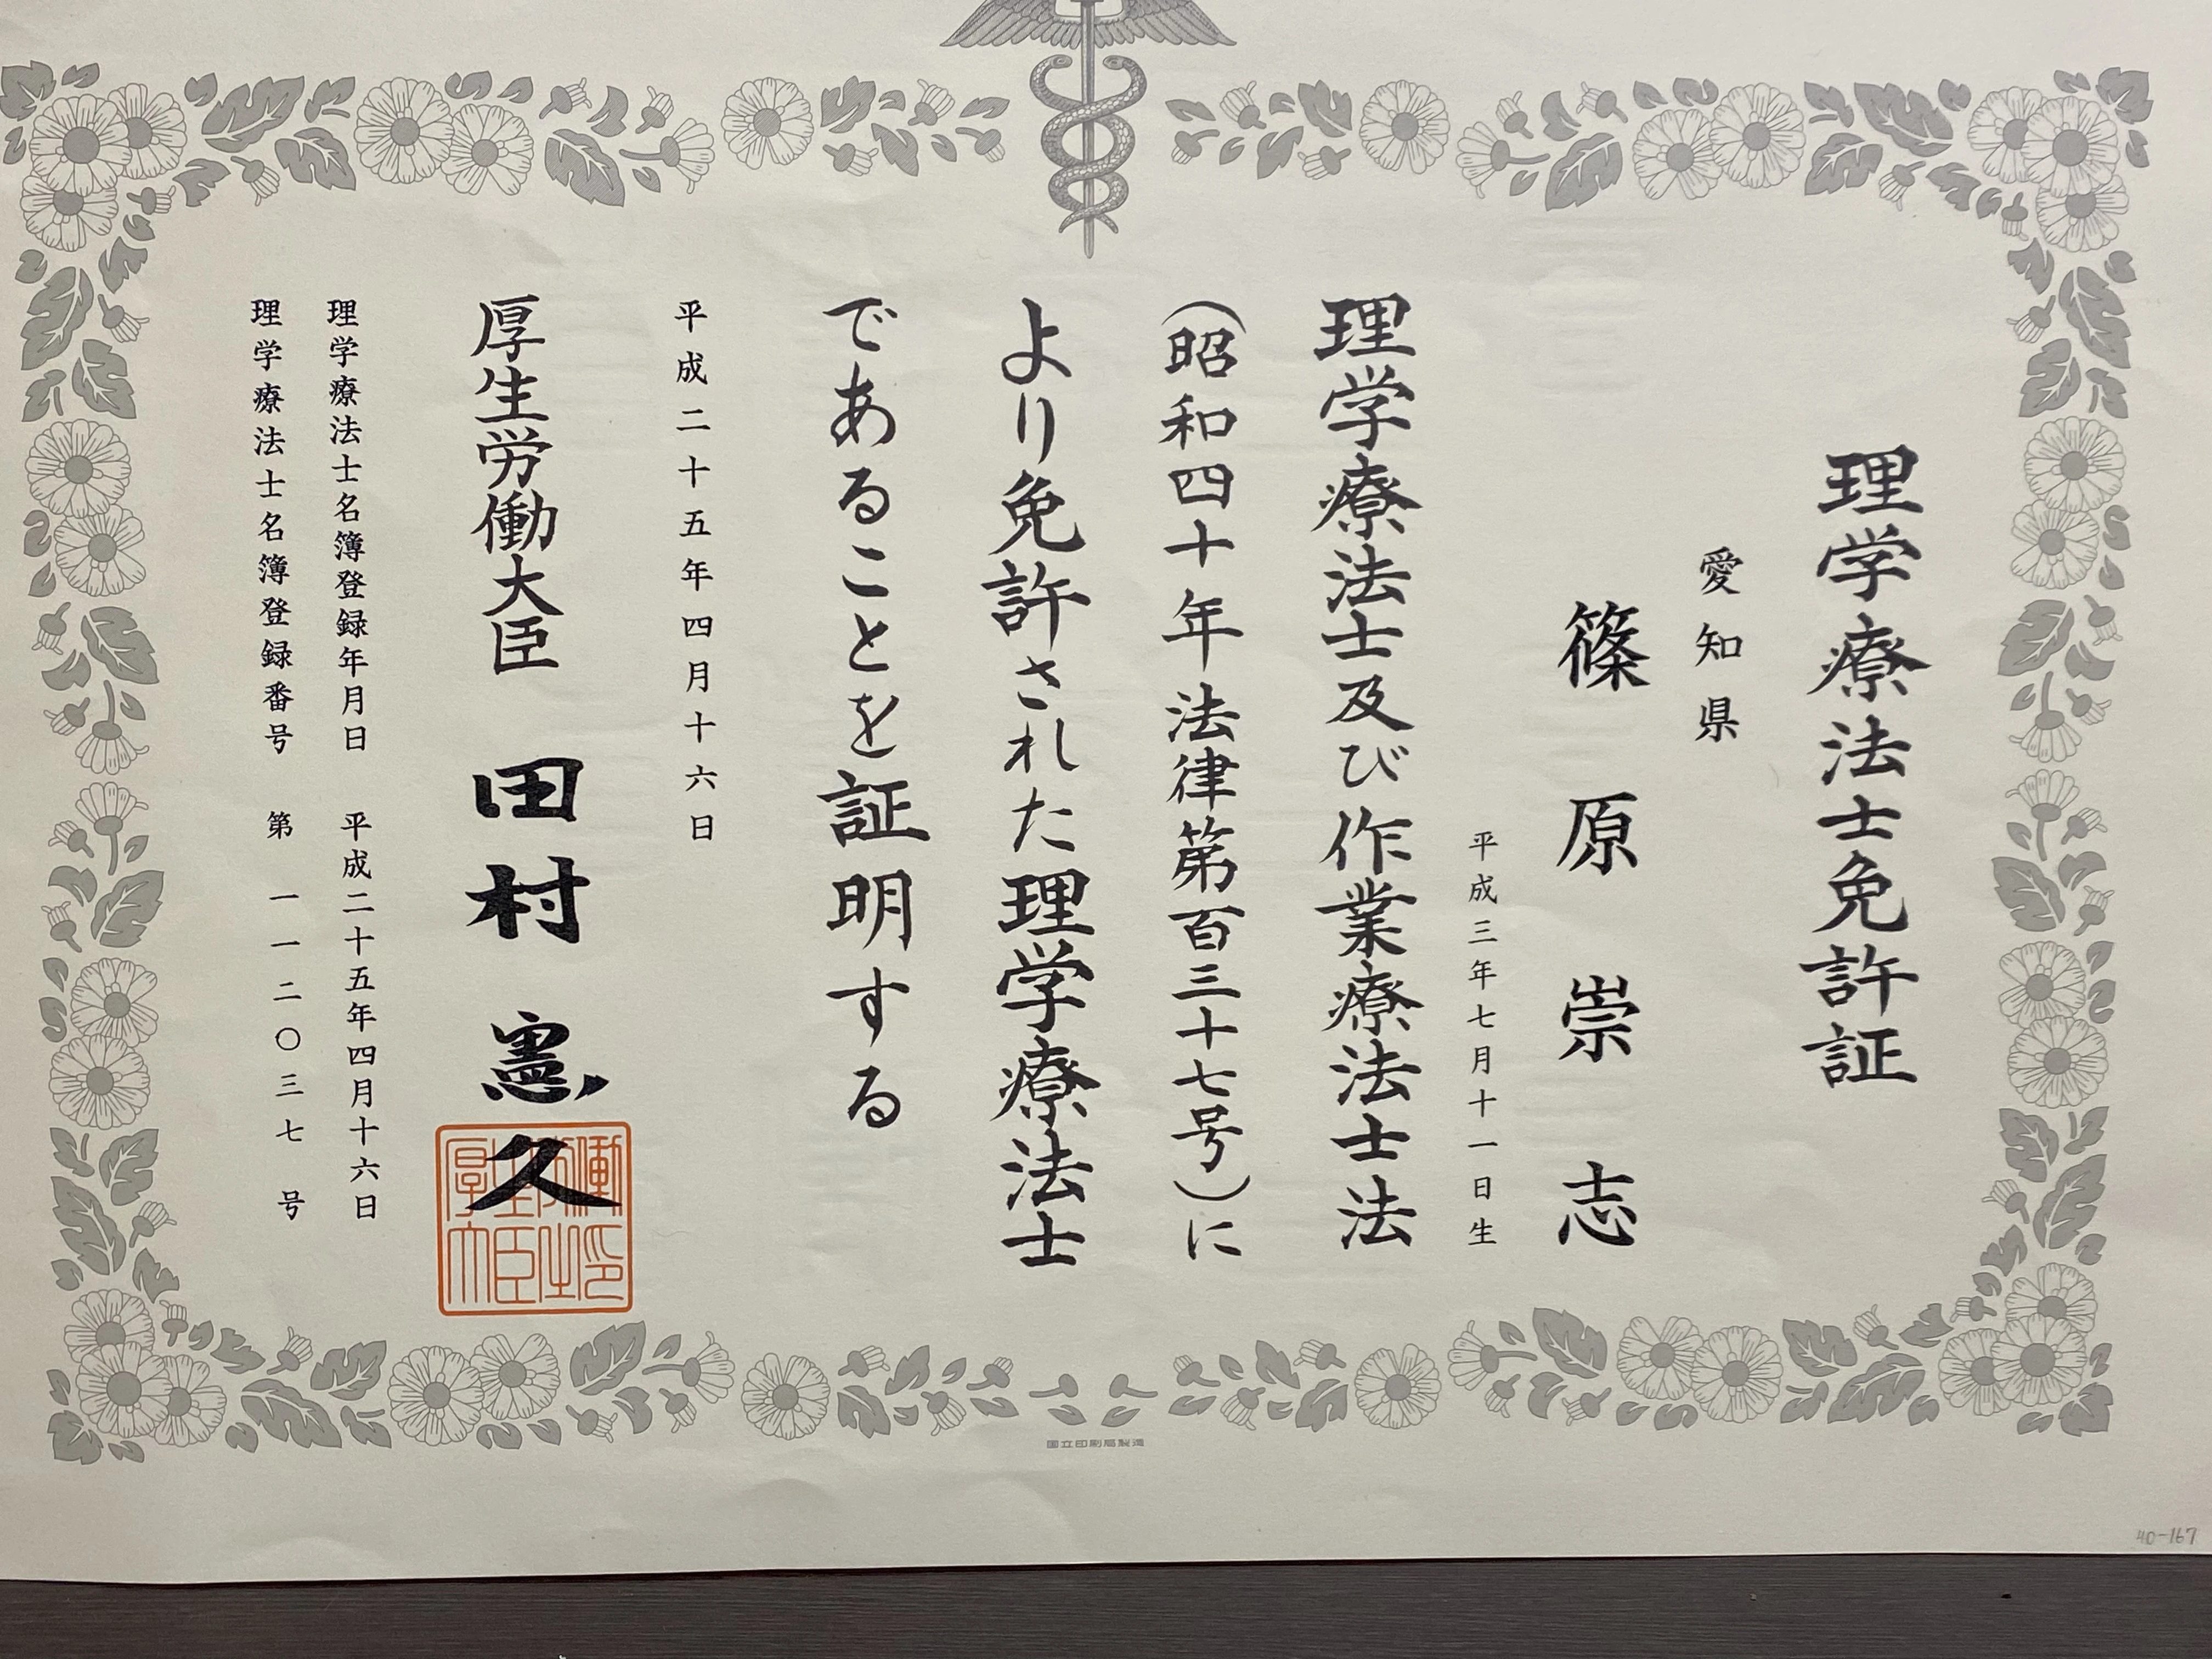 理学療法士免許証
愛知県
篠原崇志
平成三年七月十一日生
理学療法士及び作業療法士法
（昭和四十年法律第百三十七号）に
より免許された理学療法士
であることを証明する
平成二十五年四月十六日
厚生労働大臣 田村憲久
厚生労働大臣印
理学療法士名簿登録年月日 平成二十五年四月十六日
理学療法士名簿登録番号 第一一二〇三七号
国立印刷局製造
40-167